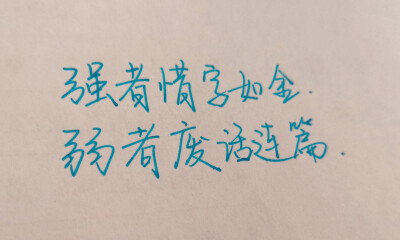 强者惜字如金.
弱者废话连篇.